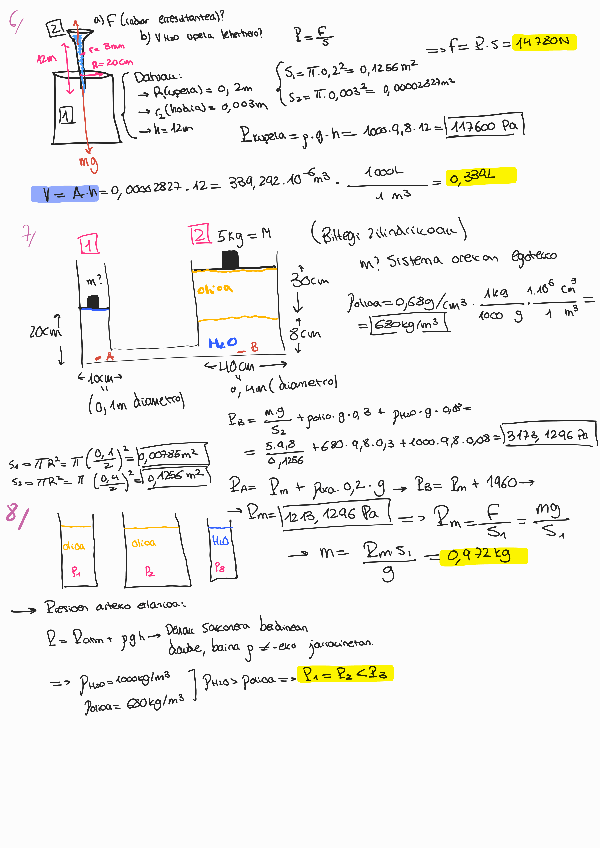 6/ 2. a) F (indar erresultantea)?
b) V H2O upela lehertzeko?
P = F/S
=> F = P · S = 14780N
12m
r = 3mm
R = 20cm
1
mg
Datuak:
→ R1(upela) = 0,2m
→ r2(hodia) = 0,003m
→ h = 12m
S1 = π · 0,2² = 0,1256 m²
S2 = π · 0,003² = 0,00002827m²
Pupela = ρ · g · h = 1000 · 9,8 · 12 = 117600 Pa
V = A · h = 0,00002827 · 12 = 339,292 · 10⁻⁶ m³ · 1000L / 1 m³ = 0,339L
7/ 1 2 5kg = M (Bitegi zilindrikoak)
m? Sistema orekan egoteko
m?
olioa
30cm
ρolioa = 0,68g/cm³ · 1kg / 1000 g · 1·10⁶ cm³ / 1 m³ =
= 680kg/m³
20cm
8cm
H2O
A
B
10cm
40cm
(0,1m diametro)
0,4m (diametro)
PB = m·g / S2 + ρolio · g · 0,3 + ρH2O · g · 0,08 =
= 5·9,8 / 0,1256 + 680 · 9,8 · 0,3 + 1000 · 9,8 · 0,08 = 3173,1296 Pa
S1 = πR² = π (0,1/2)² = 0,00785m²
S2 = πR² = π (0,4/2)² = 0,1256 m²
PA = Pm + ρH2O · 0,2 · g → PB = Pm + 1960 →
→ Pm = 1213,1296 Pa => Pm = F/S1 = mg/S1
→ m = Pm S1 / g = 0,972kg
8/
olioa
olioa
H2O
P1
P2
P3
→ Presioen arteko erlazioa:
P = Patm + ρgh → Denak sakonera berdinean
daude, baina ρ ≠-eko jariakinetan.
=> ρH2O = 1000kg/m³
ρolioa = 680kg/m³
ρH2O > ρolioa => P1 = P2 < P3